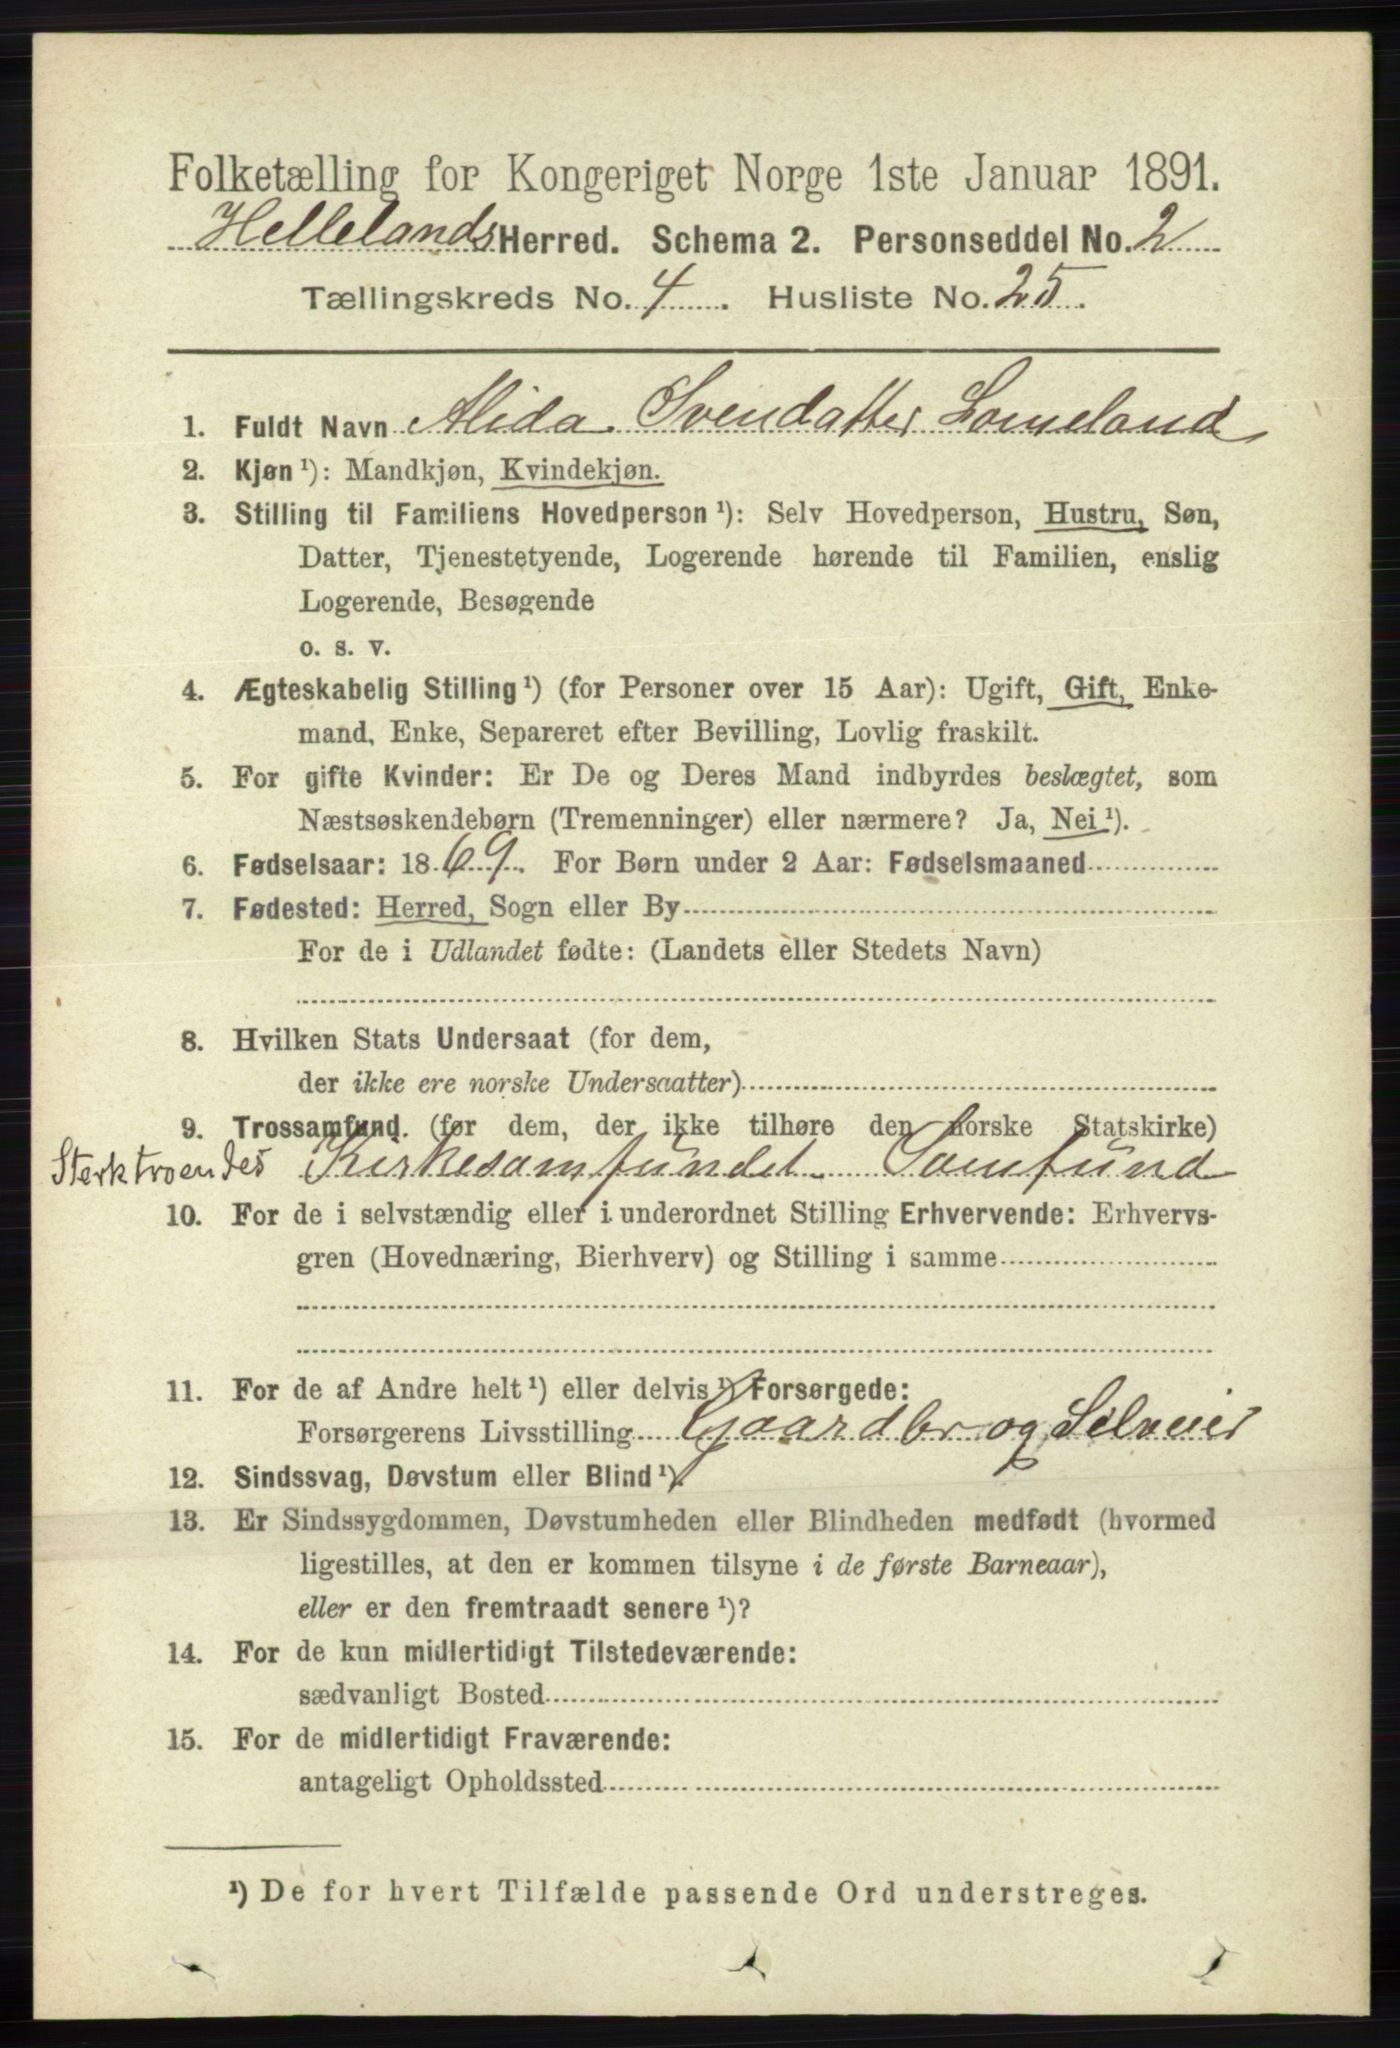 Folketælling for Kongeriget Norge 1ste Januar 1891.
Hellelands Herred. Schema 2. Personseddel No. 2
Tællingskreds No. 4. Husliste No. 25.
1. Fuldt Navn Alida Svendatter Lomeland
2. Kjøn ¹): Mandkjøn, Kvindekjøn.
3. Stilling til Familiens Hovedperson ¹): Selv Hovedperson, Hustru, Søn,
Datter, Tjenestetyende, Logerende hørende til Familien, enslig
Logerende, Besøgende
o. s. v.
4. Ægteskabelig Stilling ¹) (for Personer over 15 Aar): Ugift, Gift, Enke-
mand, Enke, Separeret efter Bevilling, Lovlig fraskilt.
5. For gifte Kvinder: Er De og Deres Mand indbyrdes beslægtet, som
Næstsøskendebørn (Tremenninger) eller nærmere? Ja, Nei ¹).
6. Fødselsaar: 1869. For Børn under 2 Aar: Fødselsmaaned
7. Fødested: Herred, Sogn eller By
For de i Udlandet fødte: (Landets eller Stedets Navn)
8. Hvilken Stats Undersaat (for dem,
der ikke ere norske Undersaatter)
9. Trossamfund. (for dem, der ikke tilhøre den norske Statskirke)
Sterktroendes Kirkesamfundet Samfund
10. For de i selvstændig eller i underordnet Stilling Erhvervende: Erhvervs-
gren (Hovednæring, Bierhverv) og Stilling i samme
11. For de af Andre helt ¹) eller delvis ¹) Forsørgede:
Forsørgerens Livsstilling Gaardbr og Selveier
12. Sindssvag, Døvstum eller Blind ¹).
13. Er Sindssygdommen, Døvstumheden eller Blindheden medfødt (hvormed
ligestilles, at den er kommen tilsyne i de første Barneaar),
eller er den fremtraadt senere ¹)?
14. For de kun midlertidigt Tilstedeværende:
sædvanligt Bosted
15. For de midlertidigt Fraværende:
antageligt Opholdssted
¹) De for hvert Tilfælde passende Ord understreges.